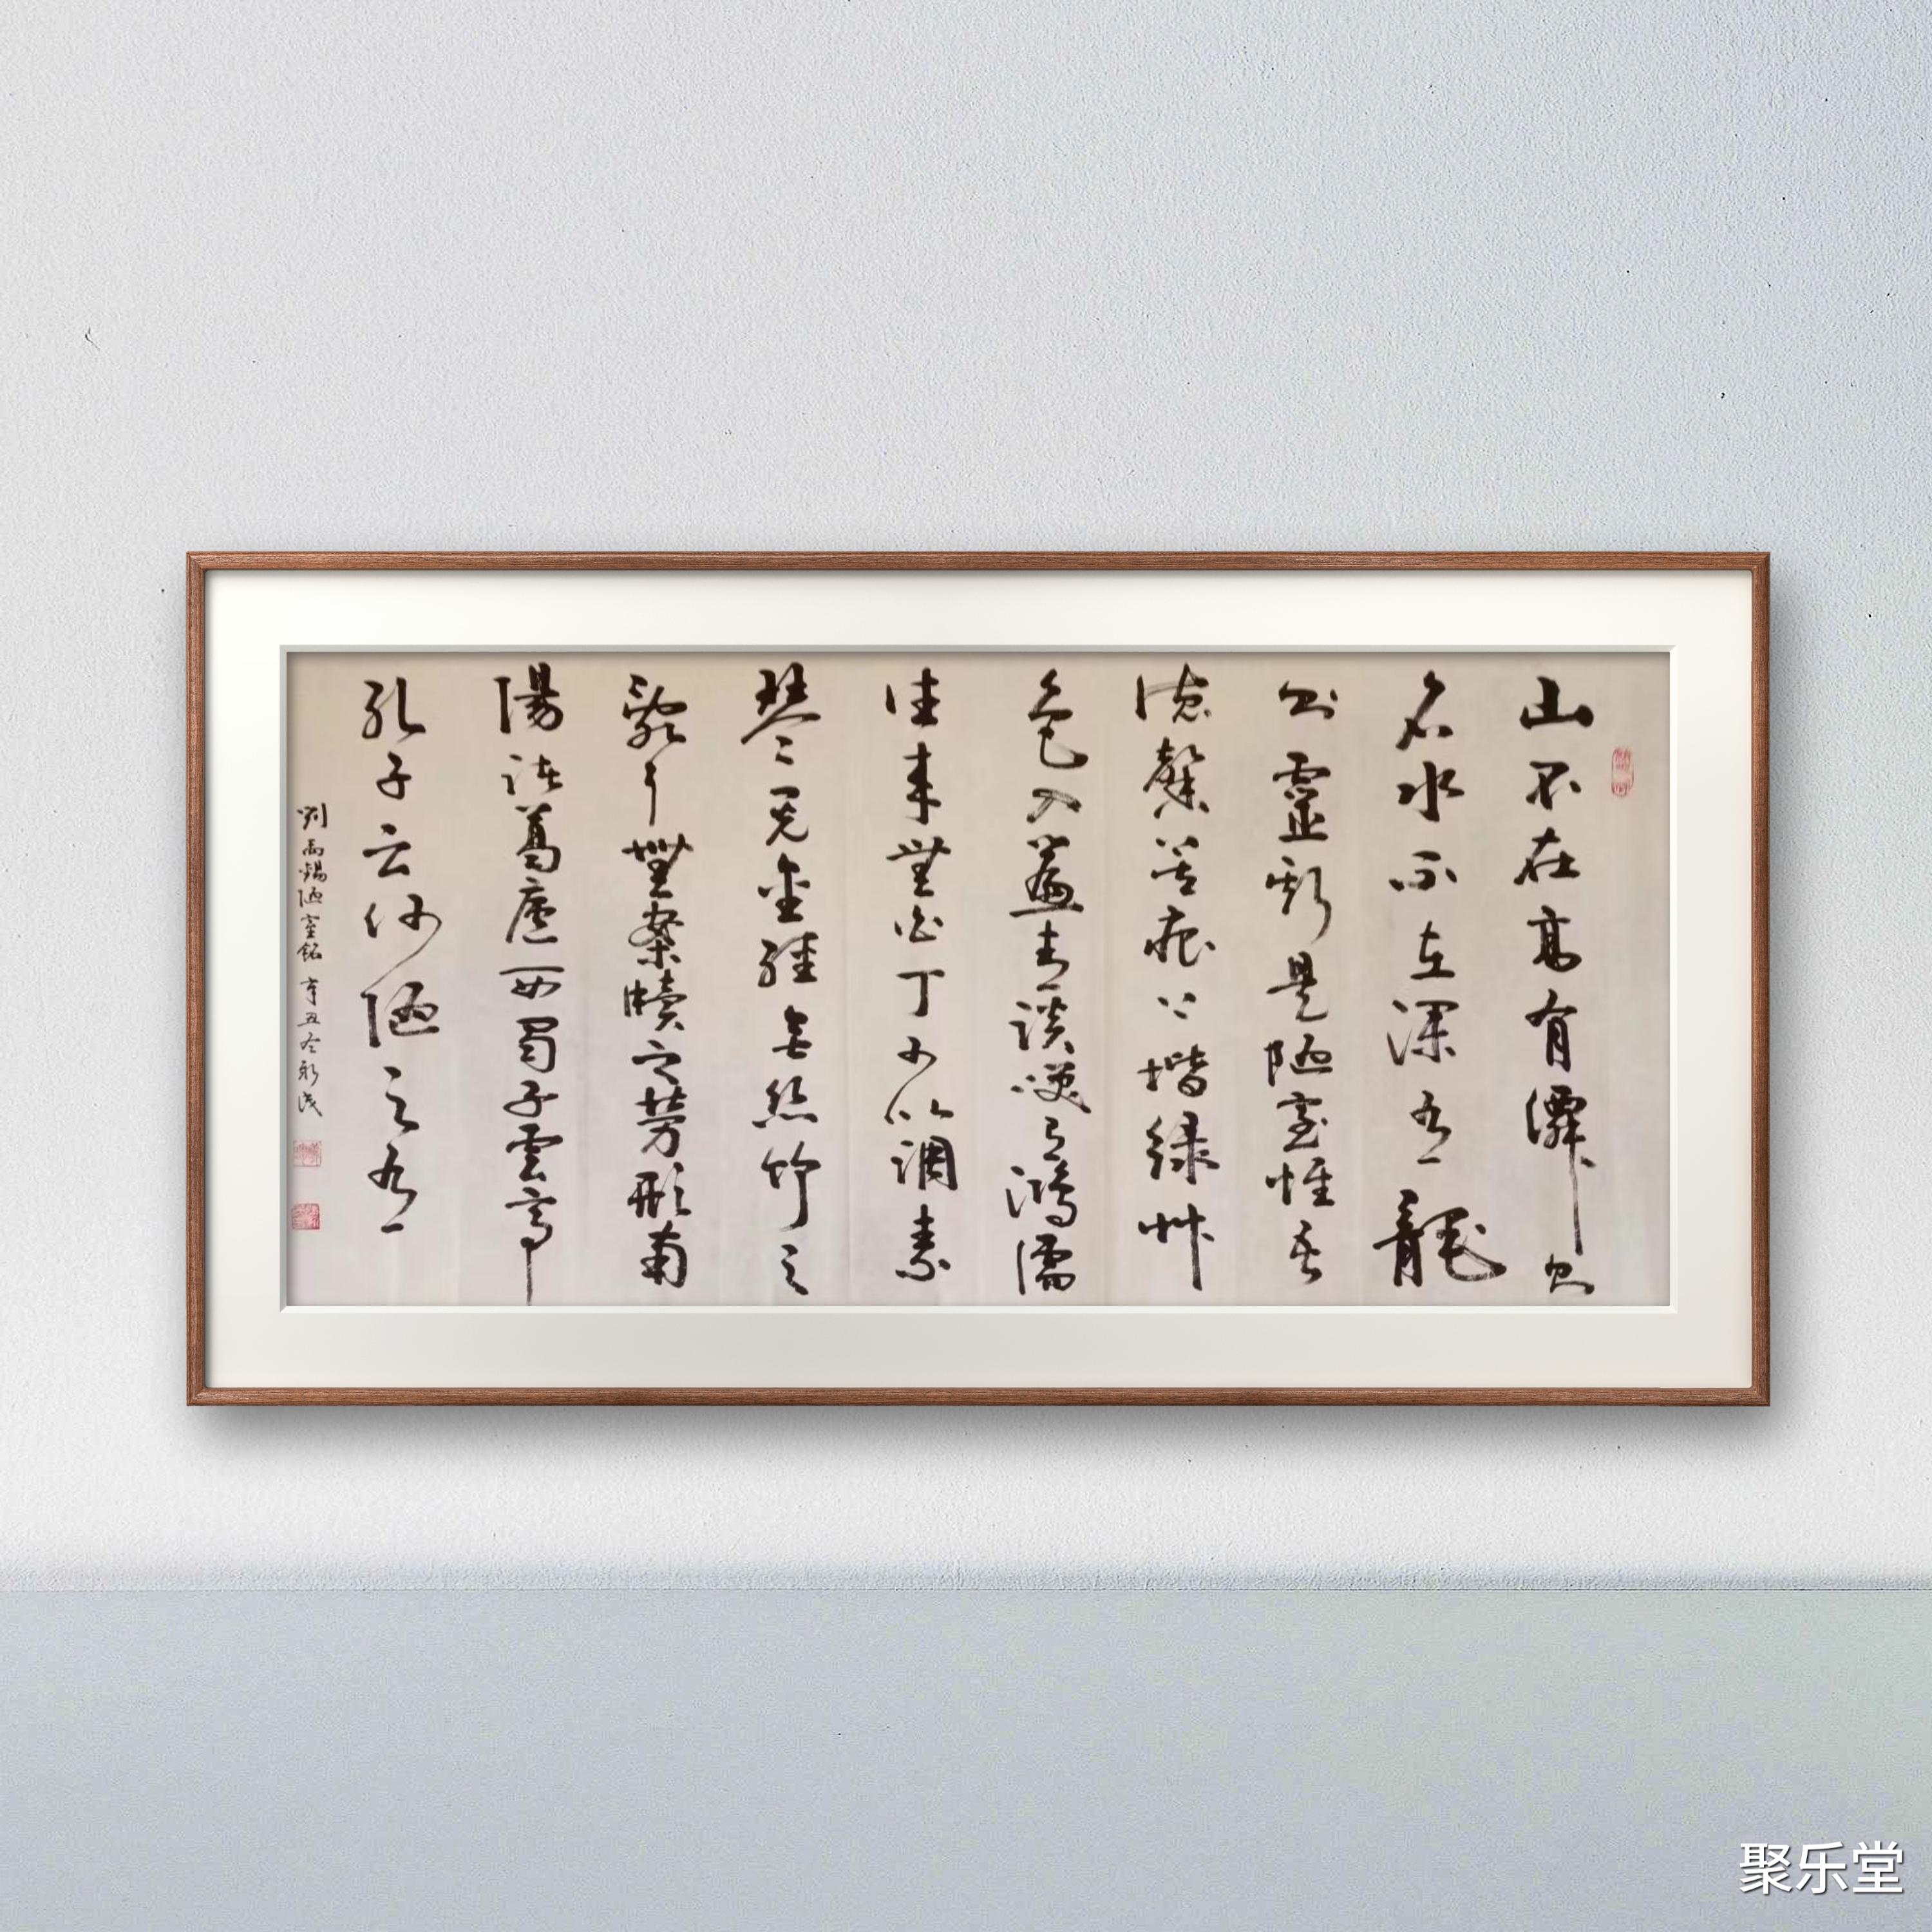 山不在高有僊則
名水不在深有龍
則靈斯是陋室惟吾
德馨苔痕上堦綠艸
色入簾青談咲有鴻儒
往来無白丁可以調素
琴閱金經無絲竹之
亂耳無案牘之勞形南
陽諸葛廬西蜀子雲亭
孔子云何陋之有
劉禹錫陋室銘 辛丑冬
聚乐堂